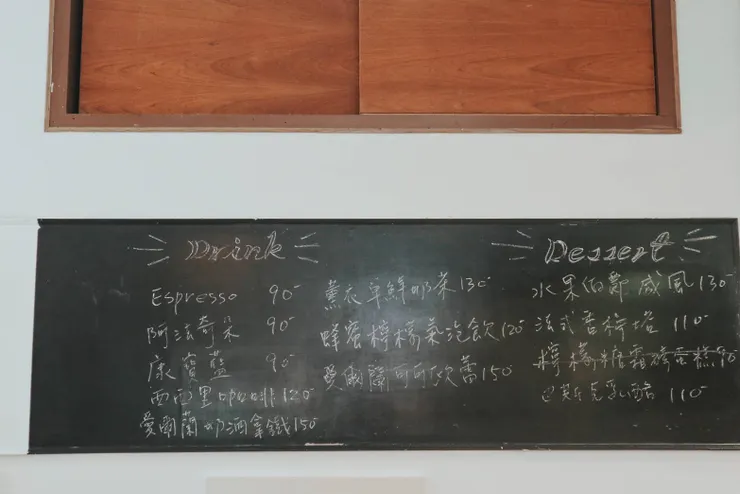 Drink
Espresso 90-
阿法奇朵 90-
康寶藍 90-
西西里咖啡 120-
愛爾蘭奶酒拿鐵 150-
薰衣草鮮奶茶 130-
蜂蜜檸檬氣泡飲 120-
愛爾蘭可可歐蕾 150-
Dessert
水果伯爵戚風 130-
法式香檸塔 110-
檸檬糖霜磅蛋糕 90-
巴斯克乳酪 110-